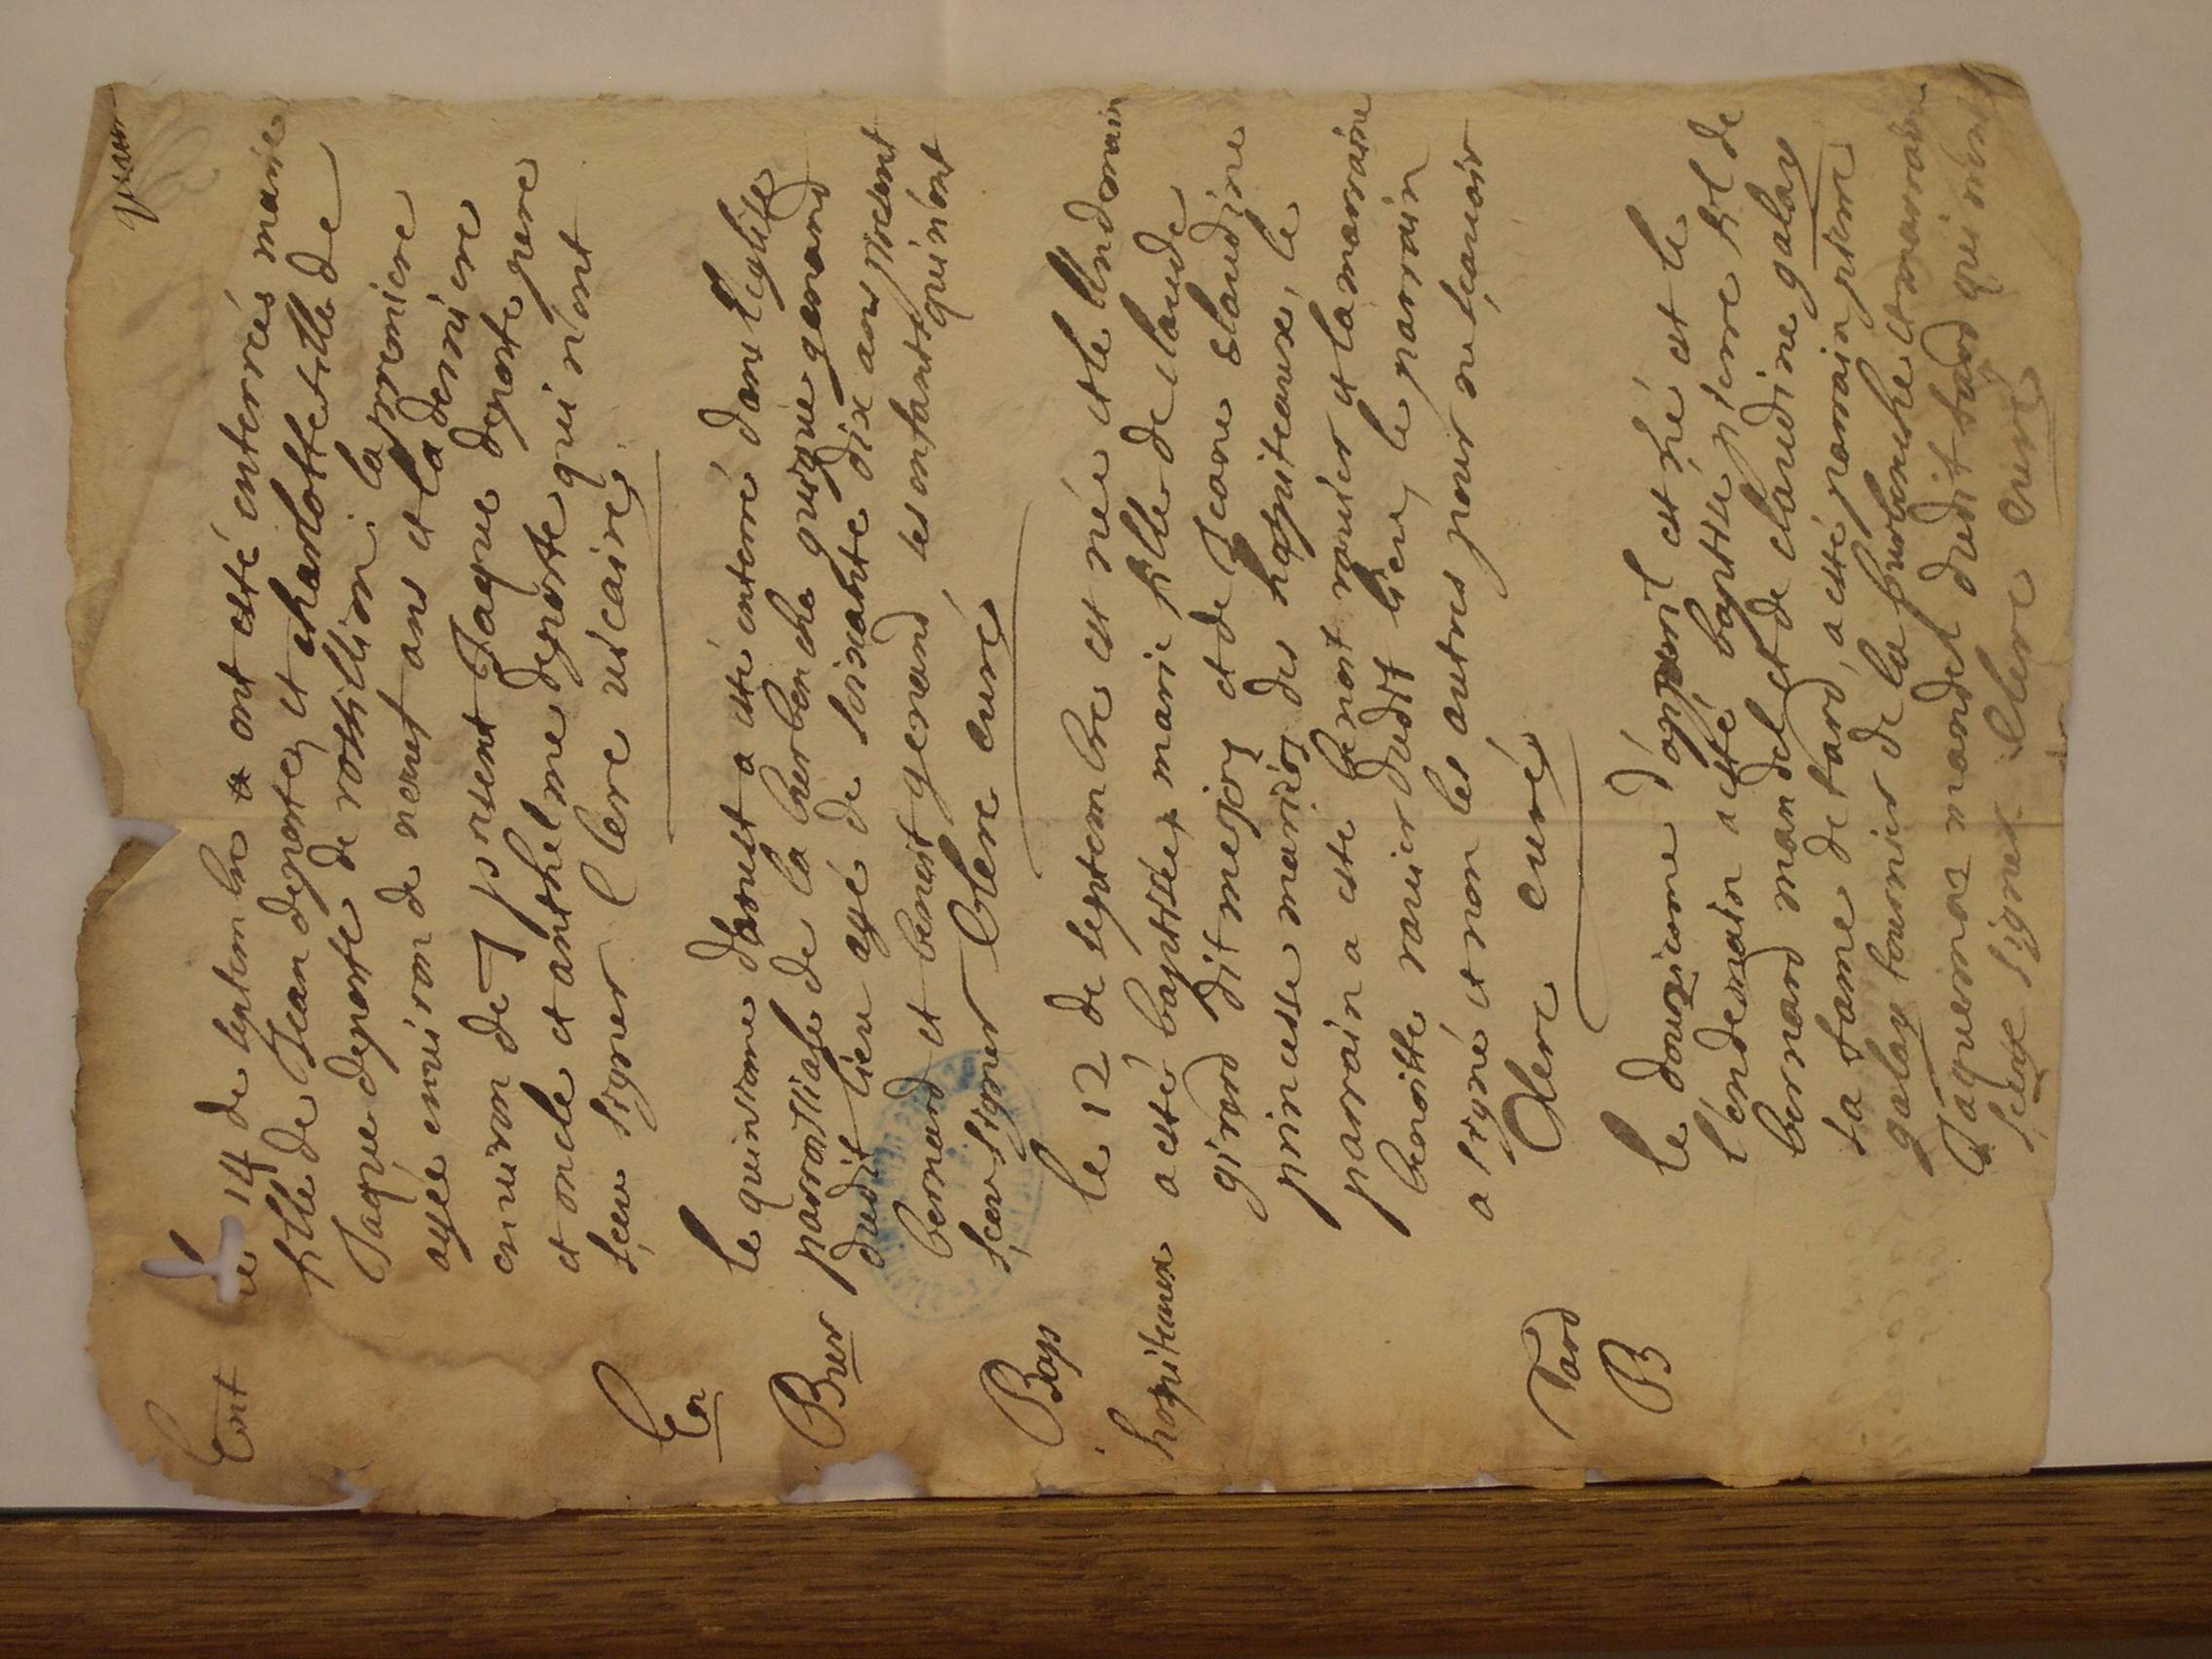 Ent le 14 de septembre ont esté enterrées marie
fille de Jean deporte, et charlotte fille de
Jaque deporte de rossillion, la premiere
agée environ de neuf ans et la derniere
environ de 7 present Jaque deporte pere
et oncle et anthelme deporte qui n'ont
sceu signer Clere vicaire
En
le quinsieme daoust a esté enterré dans l'eglise
Bur parrossiale de la burbanche guigue genard
dudit lieu agé de soixante dix ans present
bernard et benoist genard, ses enfants qui n'ont
sceu signer Clere curé
Bap
le 12 de septembre est née et le lendemain
hopiteaux a esté baptisée marie fille de claude
girard dit mejoz et de Jeane claudine
princesse mariés des hopiteaux, le
parrain a esté benoit ravier et la marraine
benoitte ravier dudit lieu, le parrain
a signé et non les autres pour ne sçavoir
Clere curé
Tard
B
le douzieme d'apvril est né et le
lendemain a esté baptisé pierre fil de
bernard mandel et de claudine galay
sa fame de tard, a esté parrain pierre
galay tournier de la burbanche et marraine
Jaquemaz mandel dudit tard qui n'ont
sceux signer Clere curé